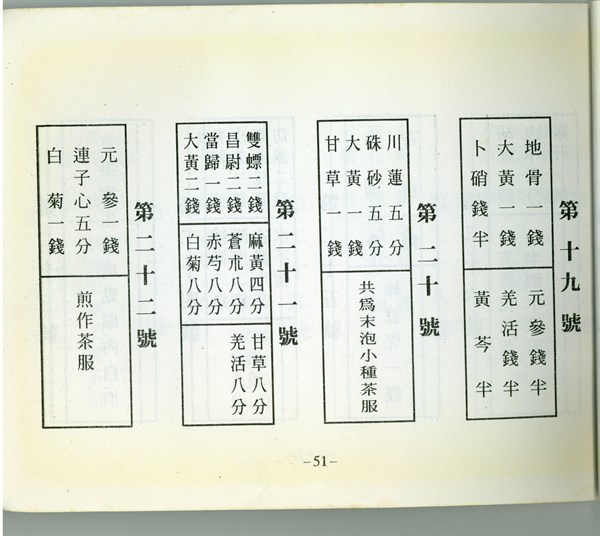 第十九號
地骨一錢
大黃一錢
卜硝錢半
元參錢半
羌活錢半
黃芩半
第二十號
川蓮五分
硃砂五分
大黃一錢
甘草一錢
共爲末泡小種茶服
第二十一號
雙螵二錢
昌尉二錢
當歸一錢
大黃二錢
麻黃四分
蒼朮八分
赤芍八分
白菊八分
甘草八分
羌活八分
第二十二號
元參一錢
連子心五分
白菊一錢
煎作茶服
-51-